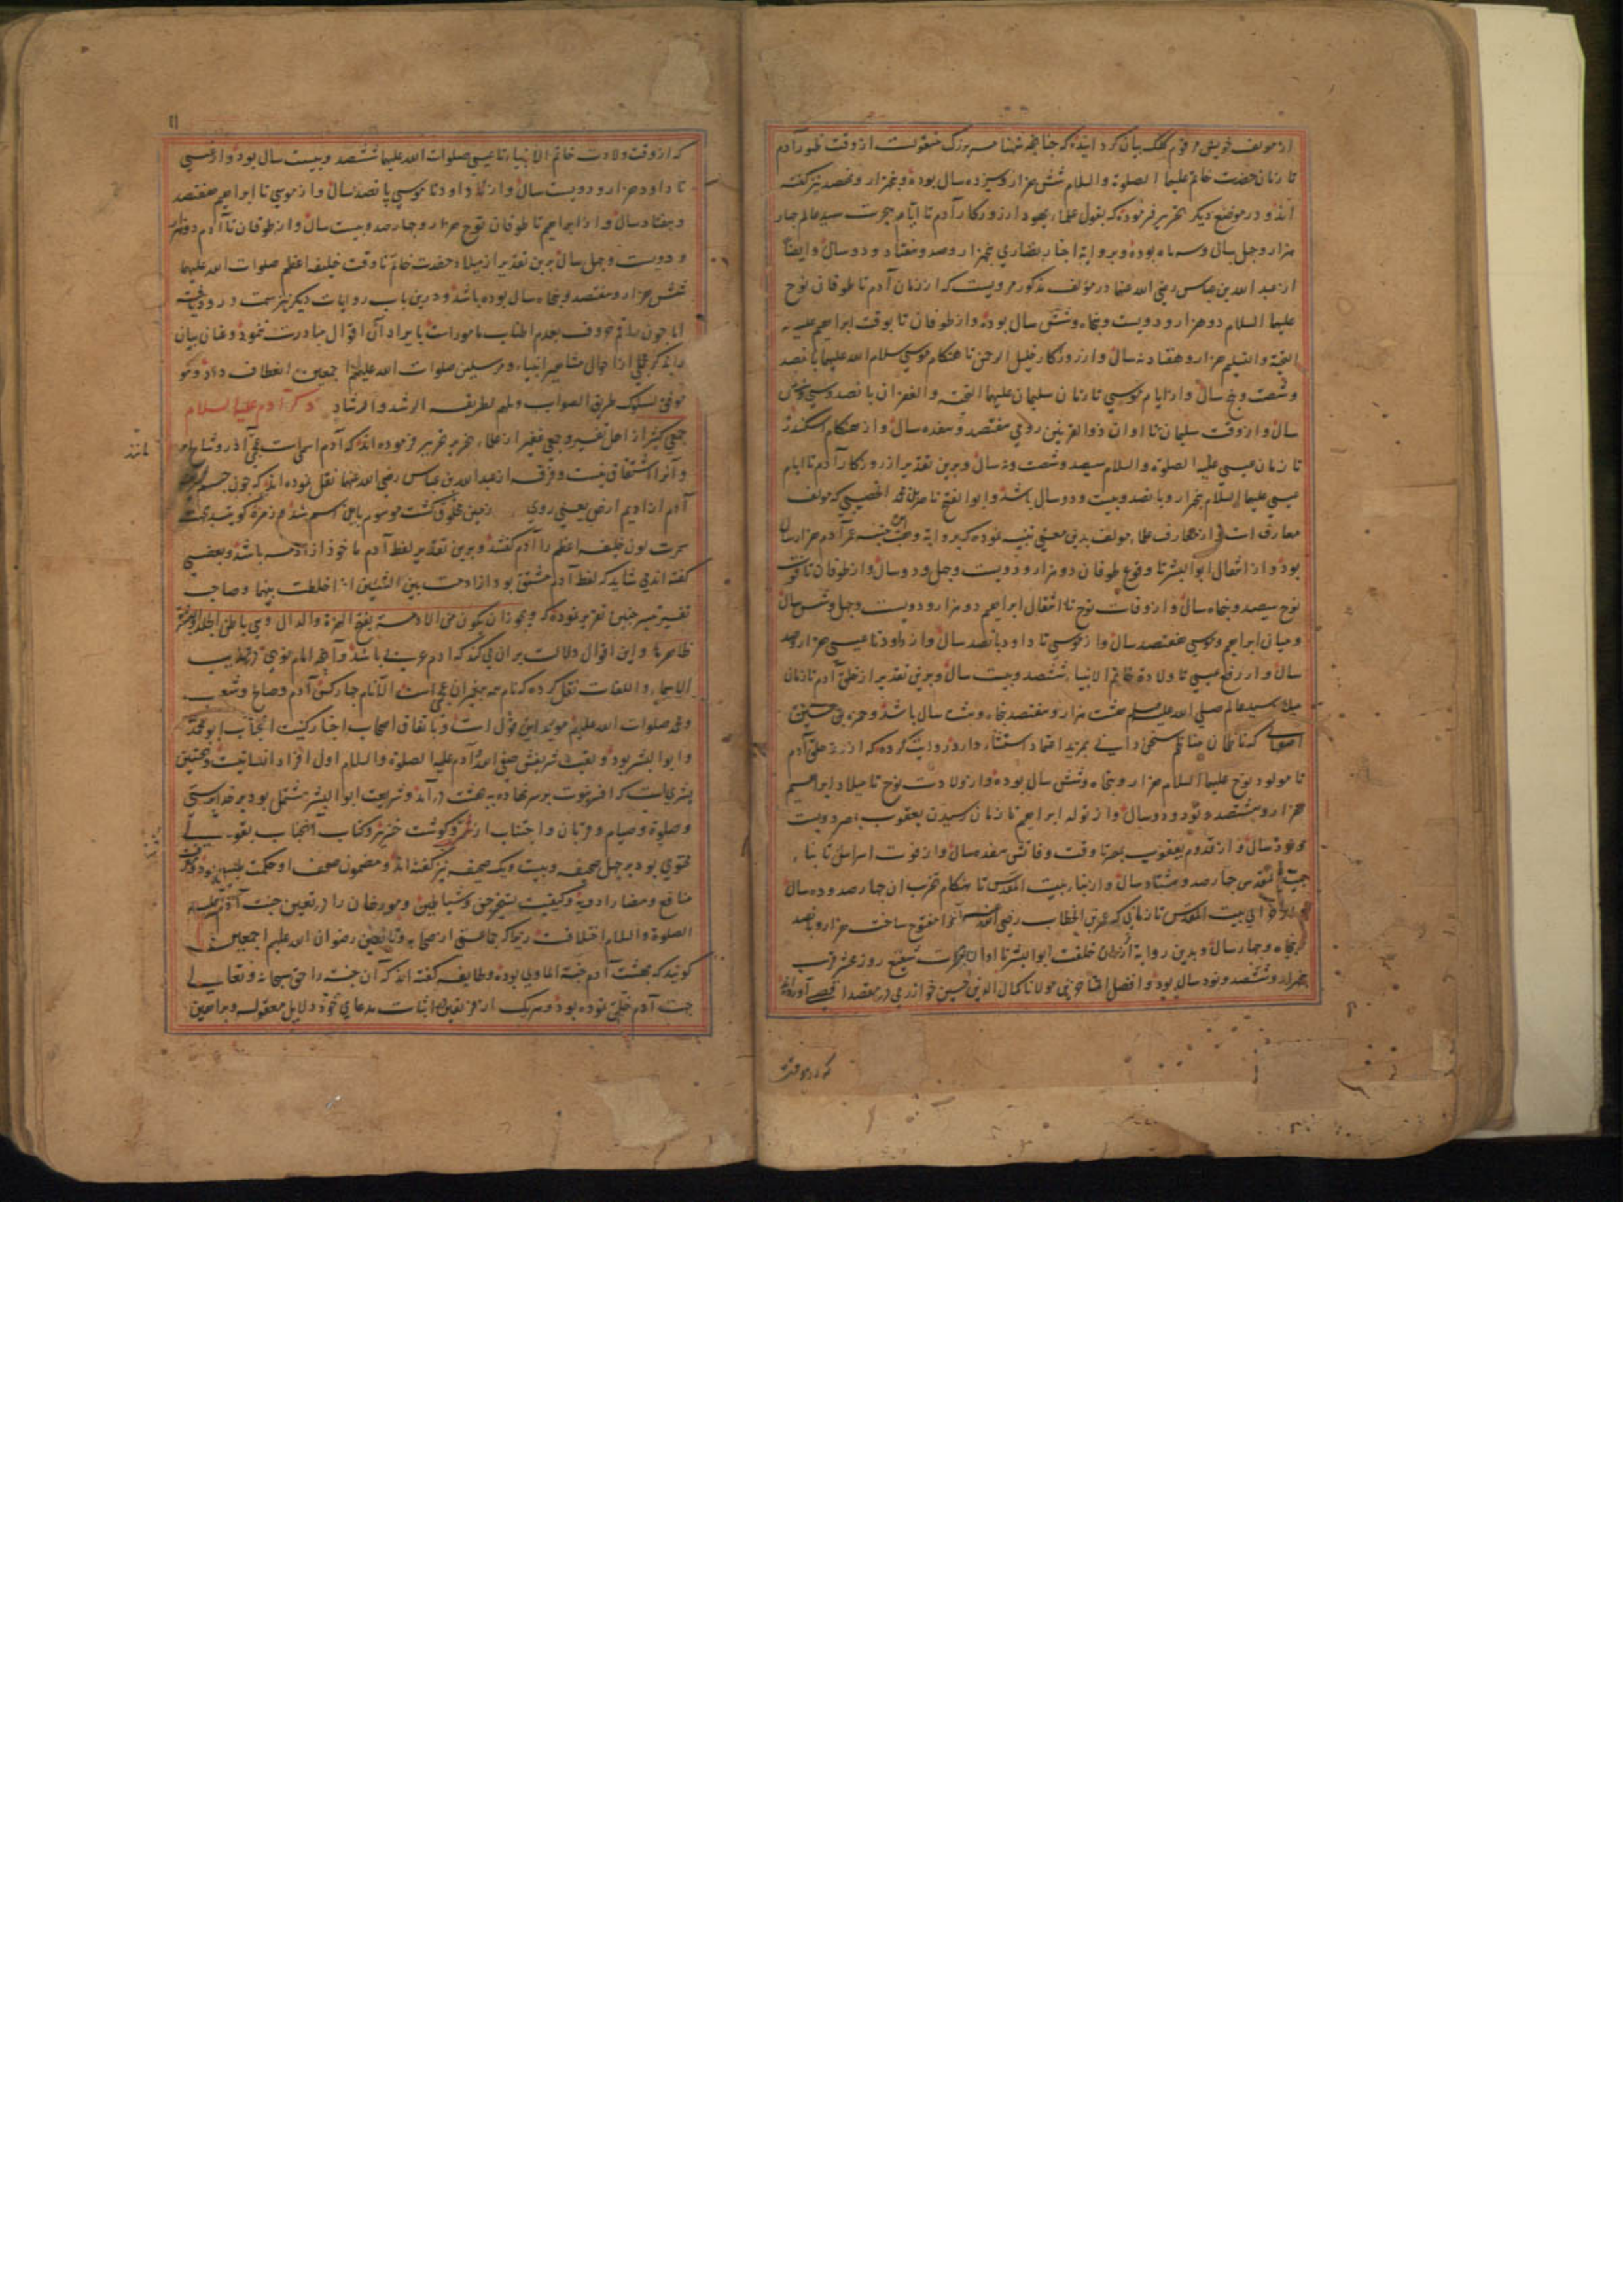 تا زمان حضرت خاتم عليهما الصلوة والسلام شش هزار و سیزده سال بوده و پنجهزار و نهصد نیز گفته
اند و در موضع دیگر تحریر فرموده که بقول علماء یهود از روزکار آدم تا ایام هجرت سید عالم چهار
هزار و چهل سال و سه ماه بوده و بروایة احبار نصاری پنجهزار و صد و هفتاد و دو سال و ایضاً
از عبد الله بن عباس رضی الله عنهما در مؤلف مذکور مرویست که از زمان آدم تا طوفان نوح
علیهما السلام دو هزار و دویست و پنجاه و شش سال بوده و از طوفان تا بوقت ابراهیم علیه
التحیة والتسلیم هزار و هفتاد و نه سال و از روزکار خلیل الرحمن تا هنکام موسی سلام الله علیهما پانصد
و شصت و پنج سال و از ایام موسی تا زمان سلیمان علیهما التحیة والغفران پانصد و سی و شش
سال و از وقت سلیمان تا اوان ذو القرنین رومی هفتصد و هفده سال و از هنکام اسکندر
تا زمان عیسی علیه الصلوة والسلام سیصد و شصت و نه سال و برین تقدیر از روزکار آدم تا ایام
عیسی علیهما السلام پنجهزار و پانصد و بیست و دو سال باشد و ابوالفتح ناصر بن محمد که مؤلف
بود و از انتقال ابو البشر تا وقوع طوفان دو هزار و دویست و چهل و دو سال و از طوفان تا فوت
نوح سیصد و پنجاه سال و از وفات نوح تا انتقال ابراهیم دو هزار و دویست و چهل و شش سال
و میان ابراهیم و موسی هفتصد سال و از موسی تا داود پانصد سال و از داود تا عیسی هزار و صد
سال و از رفع عیسی تا ولادة خاتم الانبیاء ششصد و بیست سال و برین تقدیر از خلق آدم تا زمان
میلاد سید عالم صلی الله علیه وسلم هشت هزار و هفتصد پنجاه و هشت سال باشد و حمزه بن حسین
تا مولود نوح علیهما السلام هزار و پنجاه و شش سال بوده و از ولادت نوح تا میلاد ابراهیم
هزار و هشتصد و نود و دو سال و از تولد ابراهیم تا زمان رسیدن یعقوب بمصر دویست
و نود سال و از قدوم یعقوب بمصر تا وقت وفاتش هفده سال و از فوت اسرائیل تا بناء
بیت المقدس چهار صد و هشتاد سال و از بناء بیت المقدس تا هنکام تخریب ان چهار صد و ده سال
و از خرابی بیت المقدس تا زمانی که عمر بن الخطاب رضی الله عنه آنرا مفتوح ساخت هزار و پانصد
و پنجاه و چهار سال و بدین روایة از زمان خلقت ابو البشر تا اوان هجرت شفیع روز عشر قرب
پنجهزار و ششصد و نود سال بود و افضل المتأخرین مولانا کمال الدین حسین خوارزمی در مقصد اقصی آورده
که از وقت
که از وقت ولادت خاتم الانبیاء تا عیسی صلوات الله علیهما ششصد و بیست سال بود و از عیسی
تا داود هزار و دویست سال و از داود تا موسی پانصد سال و از موسی تا ابراهیم هفتصد
و هفتاد سال و از ابراهیم تا طوفان نوح هزار و چهار صد و بیست سال و از طوفان تا آدم دو هزار
و دویست و چهل سال برین تقدیر از میلاد حضرت خاتم تا وقت خلیفه اعظم صلوات الله علیهما
شش هزار و هفتصد و پنجاه سال بوده باشد و درین باب روایات دیکر نیز سمت ورود یافته
اما چون راقم حروف بعدم اطناب مامور است بایراد آن اقوال مبادرت ننمود و عنان بیان
را بذکر مجملی از احوال مشاهیر انبیاء و مرسلین صلوات الله علیهم اجمعین انعطاف داد
ذکر آدم علیه السلام
جمعی کثیر از اهل تفسیر و جمعی غفیر از علماء تحریر فرموده اند که آدم اسمی است عجمی آذر و شالخ
مانند
و آنرا اشتقاق نیست و فرقه از عبد الله بن عباس رضی الله عنهما نقل نموده اند که چون جسد
آدم از ادیم ارض یعنی روی زمین مخلوق کشت موسوم باین اسم شد و زمره کویند
سمرت لون خلیفه اعظم را آدم کفتند و برین تقدیر لفظ آدم ماخوذ از ادمه باشد و بعضی
کفته اند می شاید که لفظ آدم مشتق بود از ادمت بین الشیئین اذا خلطت بینهما و صاحب
ظاهرها و این اقوال دلالت بران می کند که ادم عربی باشد و آنچه امام نووی در تهذیب
الاسماء واللغات نقل کرده که نام همه پیغمبران عجمی است الا نام چهار کس آدم و صالح و شعیب
و محمد صلوات الله علیهم موید این قول است و باتفاق اصحاب اخبار کنیت انجناب ابو محمد
و ابو البشر بود و لقب شریفش صفی الله و آدم علیه الصلوة والسلام اول افراد انسانیت و نخستین
پیغمبریست که افسر نبوت بر سر نهاده به بهشت در آمد و شریعت ابو البشر مشتمل بود بر خدا پرستی
و صلوة و صیام و قربان و اجتناب از خمر و کوشت خنزیر و کتاب آنجناب بقولی
محتوی بود بر چهل صحیفه و بیست و یک صحیفه نیز کفته اند و مضمون صحف او حکمت
منافع و مضار ادویه و کیفیت تسخیر جن و شیاطین و مورخان را در تعیین جنت آدم علیه
الصلوة والسلام اختلافست زیرا که جماعتی از صحابه و تابعین رضوان الله علیهم اجمعین
کویند که بهشت آدم جنة الماوی بوده و طایفه کفته اند که آن جنت را حق سبحانه و تعالی
جهت آدم خلق نموده بود و هریک از فریقین اثبات مدعای خود دلایل معقوله و براهین